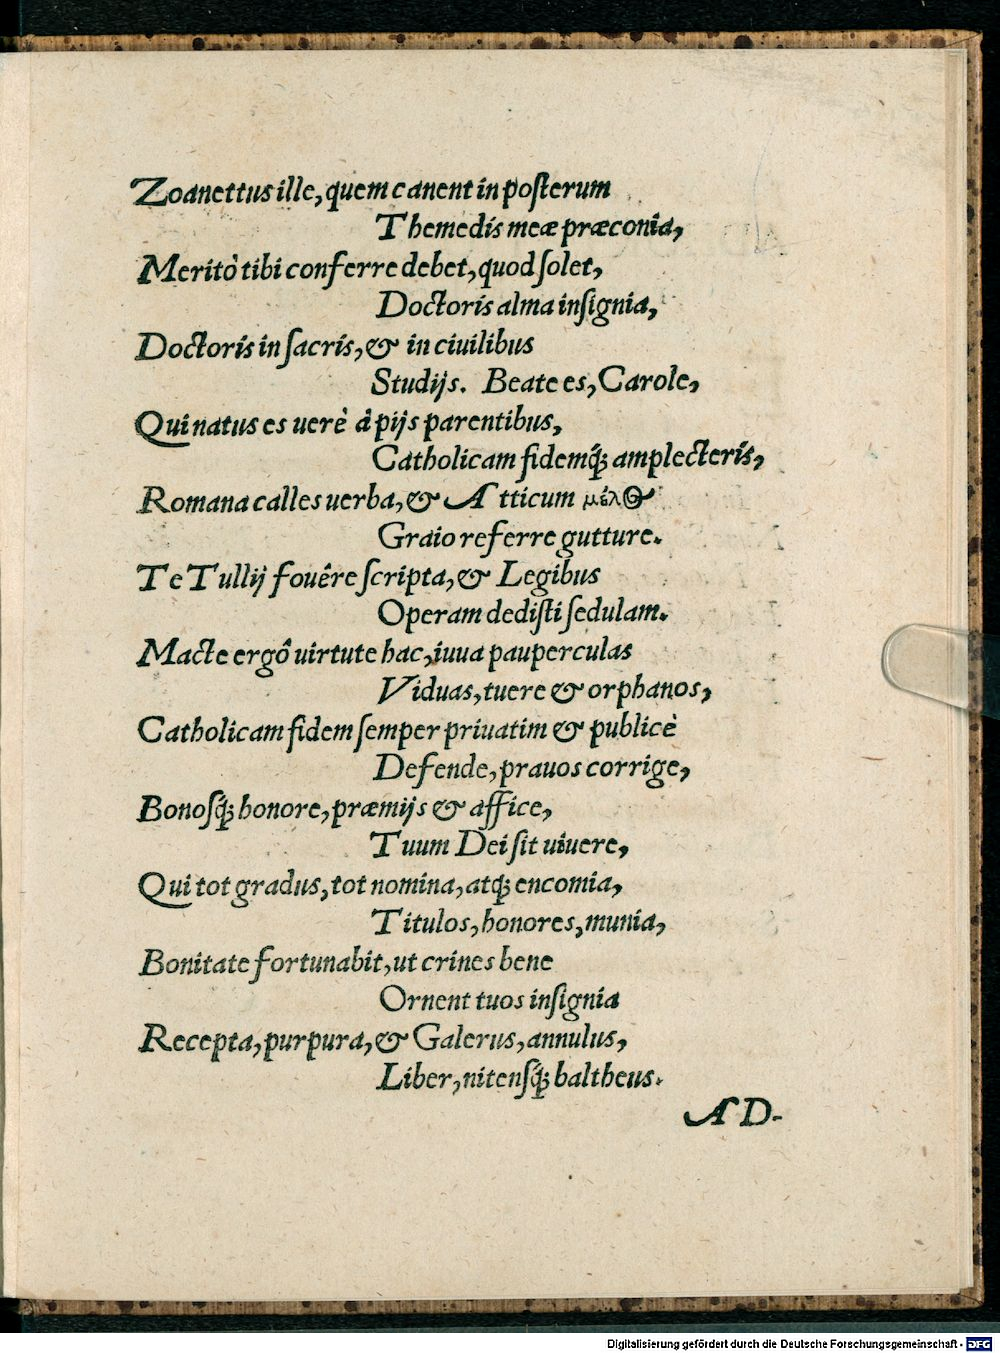 Zoanettus ille, quem canent in posterum
Themedis meæ præconia,
Meritò tibi conferre debet, quod solet,
Doctoris alma insignia,
Doctoris in sacris, & in ciuilibus
Studijs. Beate es, Carole,
Qui natus es uerè à pijs parentibus,
Catholicam fidemq́; amplecteris,
Romana calles uerba, & Atticum μέλ𝛐ς
Graio referre gutture.
Te Tullij fouêre scripta, & Legibus
Operam dedisti sedulam.
Macte ergô uirtute hac, iuua pauperculas
Viduas, tuere & orphanos,
Catholicam fidem semper priuatim & publicè
Defende, prauos corrige,
Bonosq́; honore, præmijs & affice,
Tuum Dei sit uiuere,
Qui tot gradus, tot nomina, atq; encomia,
Titulos, honores, munia,
Bonitate fortunabit, ut crines bene
Ornent tuos insignia
Recepta, purpura, & Galerus, annulus,
Liber, nitensq́; baltheus.
AD-
Digitalisierung gefördert durch die Deutsche Forschungsgemeinschaft - DFG